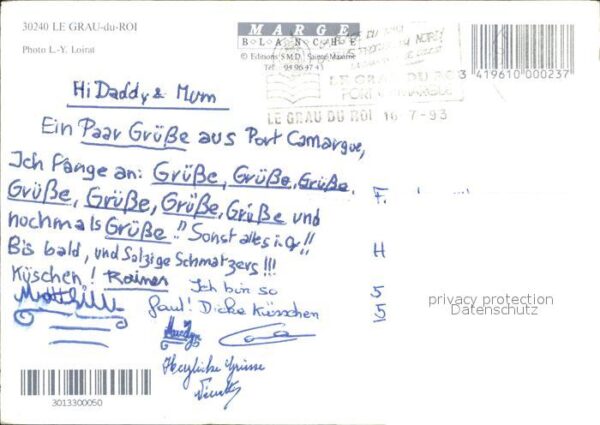 30240 LE GRAU-du-ROI
Photo L.-Y. Loirat
MARGE
BLANCHE
© Editions S.M.D. Sainte Maxime
Tél. 94 96 47 43
LE GRAU DU ROI
PORT CAMARGUE
LE GRAU DU ROI 16-7-93
3 419610 000237
Hi Daddy & Mum
Ein Paar Grüße aus Port Camargue,
Ich fange an: Grüße, Grüße, Grüße,
Grüße, Grüße, Grüße, Grüße und
nochmals Grüße!! Sonst alles i.o!!
Bis bald, und Salzige Schmatzers!!!
Küschen! Rainer
Ich bin so
faul! Dicke Küsschen
Herzliche Grüsse
F.
H
5
5
privacy protection
Datenschutz
3013300050